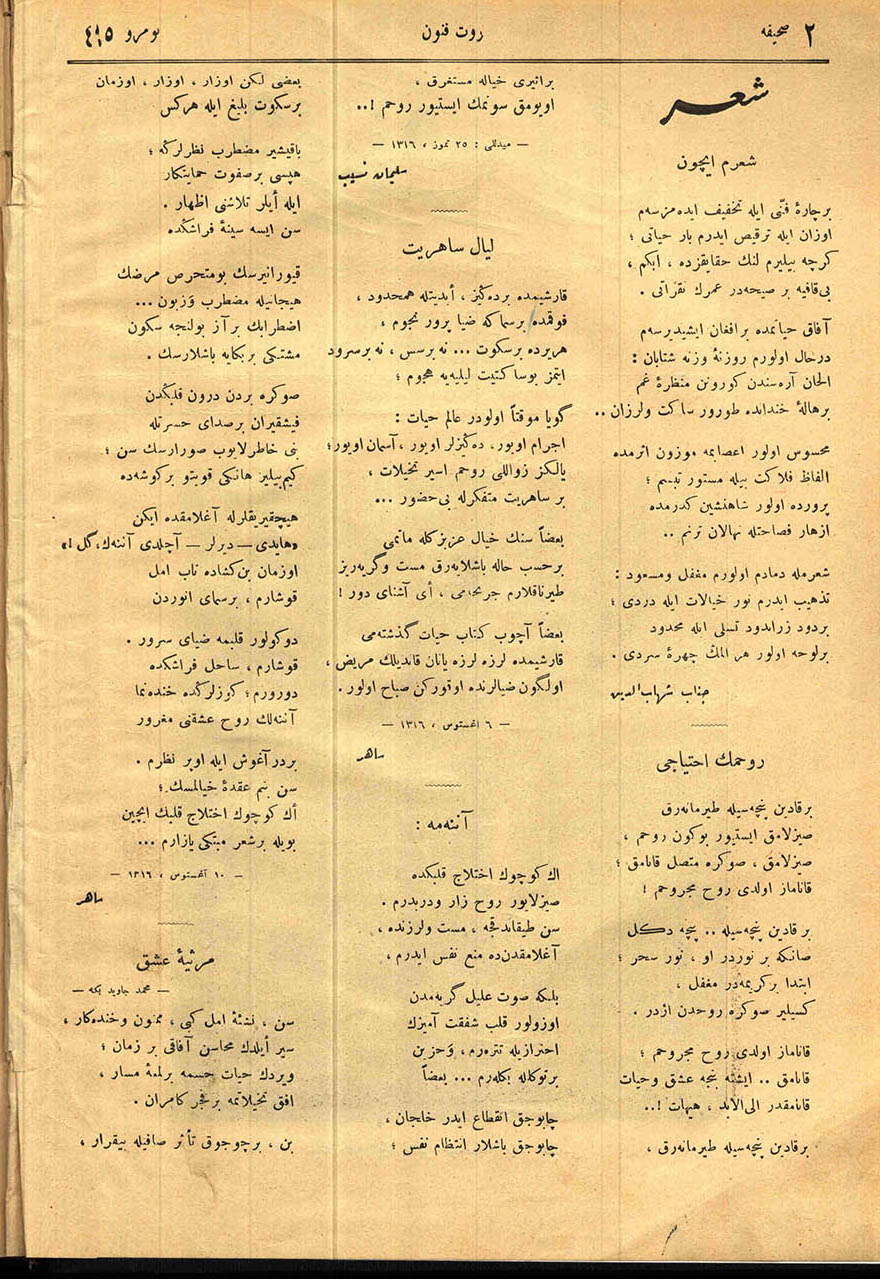 ٢ صحيفه
روت فنون
نومرو ٤١٥
شعر
شعرم ايچون
برچارهٔ فنّى ايله تخفيف ايده‌مزسه‌م
اوزان ايله ترقيص ايدرم بار حياتى ؛
كرچه بيليرم لنك حقايقزده ، ابكم ،
بى‌قافيه بر صيحه‌در عمرك نقراتى .
آفاق حياتمده برافغان ايشيديرسه‌م
درحال اولورم روزنهٔ وزنه شتابان :
الحان آره‌سندن كورونن منظرهٔ غم
برهالهٔ خندانده طورور ساكت ولرزان ..
محسوس اولور اعصابمه موزون اثرمده
الفاظ فلاكت بيله مستور تبسم ؛
پرورده اولور شاهنشين كدرمده
ازهار فصاحتله نهالان ترنم ..
شعرمله دمادم اولورم مغفل ومسعود :
تذهيب ايدرم نور خيالات ايله دردى ؛
بردود زراندود تسلى ايله محدود
برلوحه اولور هر المك چهرهٔ سردى .
جناب شهاب‌الدين
روحمك احتياجى
برقادين پنجه‌سيله طيرمانه‌رق
صيزلامق ايستيور بوكون روحم ،
صيزلامق ، صوكره متصل قانامق ؛
قاناماز اولدى روح مجروحم !
برقادين پنجه‌سيله .. پنجه دكل
صانكه بر نوردر او ، نور سحر ؛
ابتدا بركريمه‌در مغفل ،
كسيلير صوكره روحدن اژدر .
قاناماز اولدى روح مجروحم ؛
قانامق .. ايشته پنجه عشق وحيات
قانامقدر الى‌الابد ، هيهات !..
برقادين پنجه‌سيله طيرمانه‌رق ،
براثيرى خياله مستغرق ،
اويومق سونمك ايستيور روحم !..
— ميدللى : ٢٥ تموز ، ١٣١٦ —
سليمان نسيب
ليال ساهريت
قارشيمده بردكيز ، أبديتله همحدود ،
فوقمده برسماكه ضيا پرور نجوم ،
هريرده برسكوت ... نه برسس ، نه برسرود
ايتمز بوساكنيت ليليه‌يه هجوم ؛
كويا موقتاً اولودر عالم حيات :
اجرام اويور، ده‌كيزلر اويور ، آسمان اويور؛
يالكز زواللى روحم اسير تخيلات ،
بر ساهريت متفكرله بى‌حضور ...
بعضاً سنك خيال عزيزكله ماتمى
برحسب حاله باشلايه‌رق مست وكريه‌ريز
طيرناقلارم جريحه‌مى ، أى آشناى دور !
بعضاً آچوب كتاب حيات كذشته‌مى
قارشيمده لرزه لرزه يانان قانديلك مريض ،
اولكون ضيالرنده اوقوركن صباح اولور .
— ٦ اغستوس ، ١٣١٦ —
ساهر
آننه‌مه :
اك كوچوك اختلاج قلبكده
صيزلايور روح زار ودربدرم .
سن طيقاندقجه ، مست ولرزنده ،
آغلامقدن‌ده منع نفس ايدرم ،
بلكه صوت عليل كريه‌مدن
اوزولور قلب شفقت آميزك
احترازيله تتره‌رم ، وحزين
برتوكلله بكله‌رم ... بعضاً
چابوجق انقطاع ايدر خلجان ،
چابوجق باشلار انتظام نفس ؛
بعضى لكن اوزار ، اوزار ، اوزمان
برسكوت بليغ ايله هركس
باقيشير مضطرب نظرلركه ؛
هپسى برصفوت حمايتكار
ايله أيلر تلاشنى اظهار .
سن ايسه سينهٔ فراشكده
قيورانيرسك بومتحرص مرضك
هيجانيله مضطرب وزبون ...
اضطرابك برآز بولنجه سكون
مشتكى بربكايه باشلارسك .
صوكره بردن درون قلبكدن
فيشقيران برصداى حسرتله
بنى خاطرلايوب صورارسك سن ؛
كيم‌بيلير هانكى قويتو بركوشه‌ده
هيچقيريقلرله آغلامقده ايكن
«هايدى — ديرلر — آچلدى آننه‌ك، كل !»
اوزمان بن كشاده تاب امل
قوشارم ، برسماى انوردن
دوكولور قلبمه ضياى سرور .
قوشارم ، ساحل فراشكده
دورورم ؛ كوزلركده خنده‌نما
آننه‌لك روح عشقنى مغرور
بردر آغوش ايله اوپر نظرم .
سن بنم عقدهٔ خيالمسك ؛
أك كوچوك اختلاج قلبك ايچين
بويله برشعر مبتكى يازارم ...
— ١٠ آغستوس ، ١٣١٦ —
ساهر
مرثيهٔ عشق
— محمد جاويد بكه —
سن ، نشئهٔ امل كبى ، ممنون وخنده‌كار ،
سير أيلدك محاسن آفاقى بر زمان ؛
ويردك حيات حسمه برلمعهٔ مسار ،
افق تخيلاتمه برفجر كامران .
بن ، برچوجوق تأثر صافيله بيقرار ،